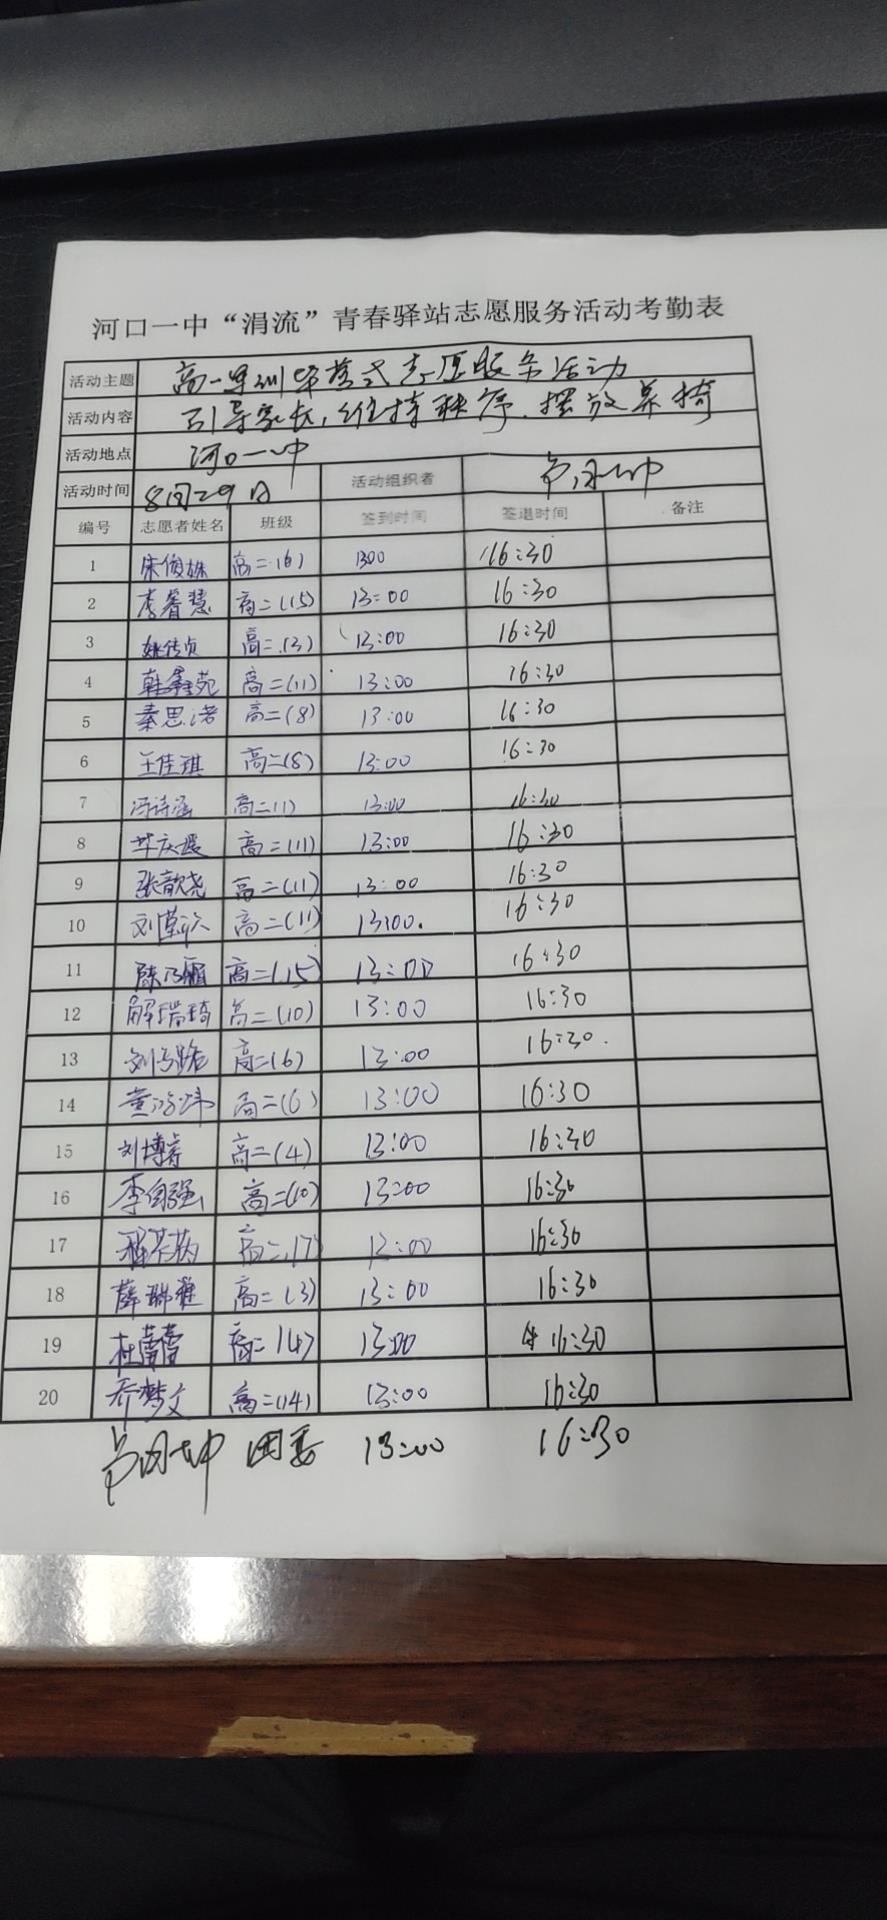 河口一中“涓流”青春驿站志愿服务活动考勤表
活动主题 高一军训毕营式志愿服务活动
活动内容 引导家长，维持秩序、摆放桌椅
活动地点 河口一中
活动时间 8月29日 活动组织者
编号 志愿者姓名 班级 签到时间 签退时间 备注
1 宋俊姝 高二(6) 1300 16:30
2 李睿慧 高二(15) 13:00 16:30
3 姚传贞 高二(3) 13:00 16:30
4 韩鑫苑 高二(11) 13:00 16:30
5 秦思诺 高二(8) 13:00 16:30
6 王佳琪 高二(8) 13:00 16:30
7 冯诗涵 高二(1) 13:00 16:30
8 高二(11) 13:00 16:30
9 张歆尧 高二(11) 13:00 16:30
10 刘 高二(11) 13:00. 16:30
11 陈乃 高二(15) 13:00 16:30
12 解瑞琦 高二(10) 13:00 16:30
13 高二(6) 13:00 16:30.
14 高二(6) 13:00 16:30
15 刘博睿 高二(4) 13:00 16:30
16 李自强 高二(10) 13:00 16:30
17 高二(7) 13:00 16:30
18 薛瑞雅 高二(3) 13:00 16:30
19 杜蕾蕾 高二(4) 13:00 16:30
20 乔梦文 高二(14) 13:00 16:30
团委 13:00 16:30